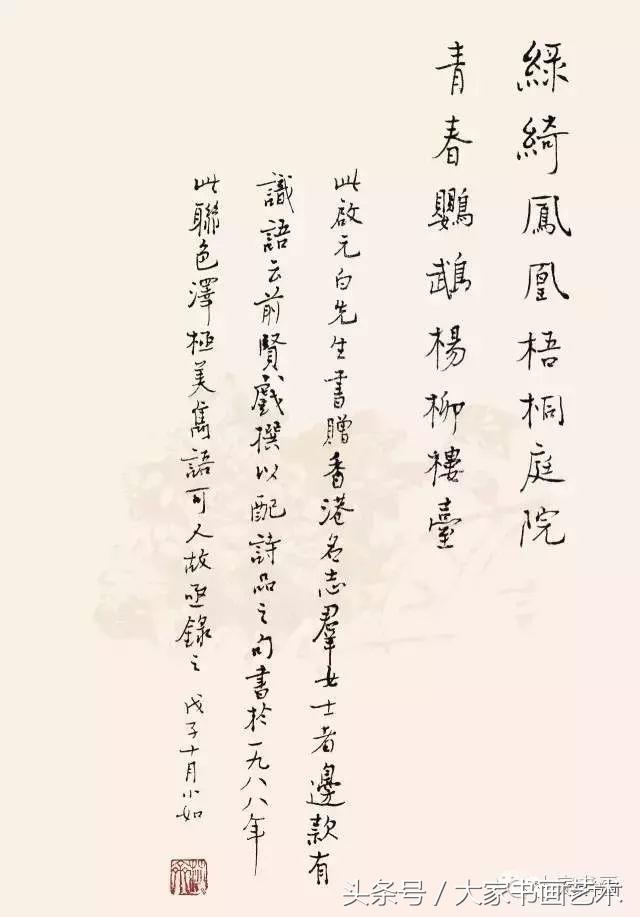 綠綺鳳凰梧桐庭院
青春鸚鵡楊柳樓臺
此啟元白先生書贈香港名志羣女士者邊款有
識語云前賢戲撰以配詩品之句書於一九八八年
此聯色澤極美雋語可人故亟錄之 戊子十月小如
头条号 / 大家书画艺术